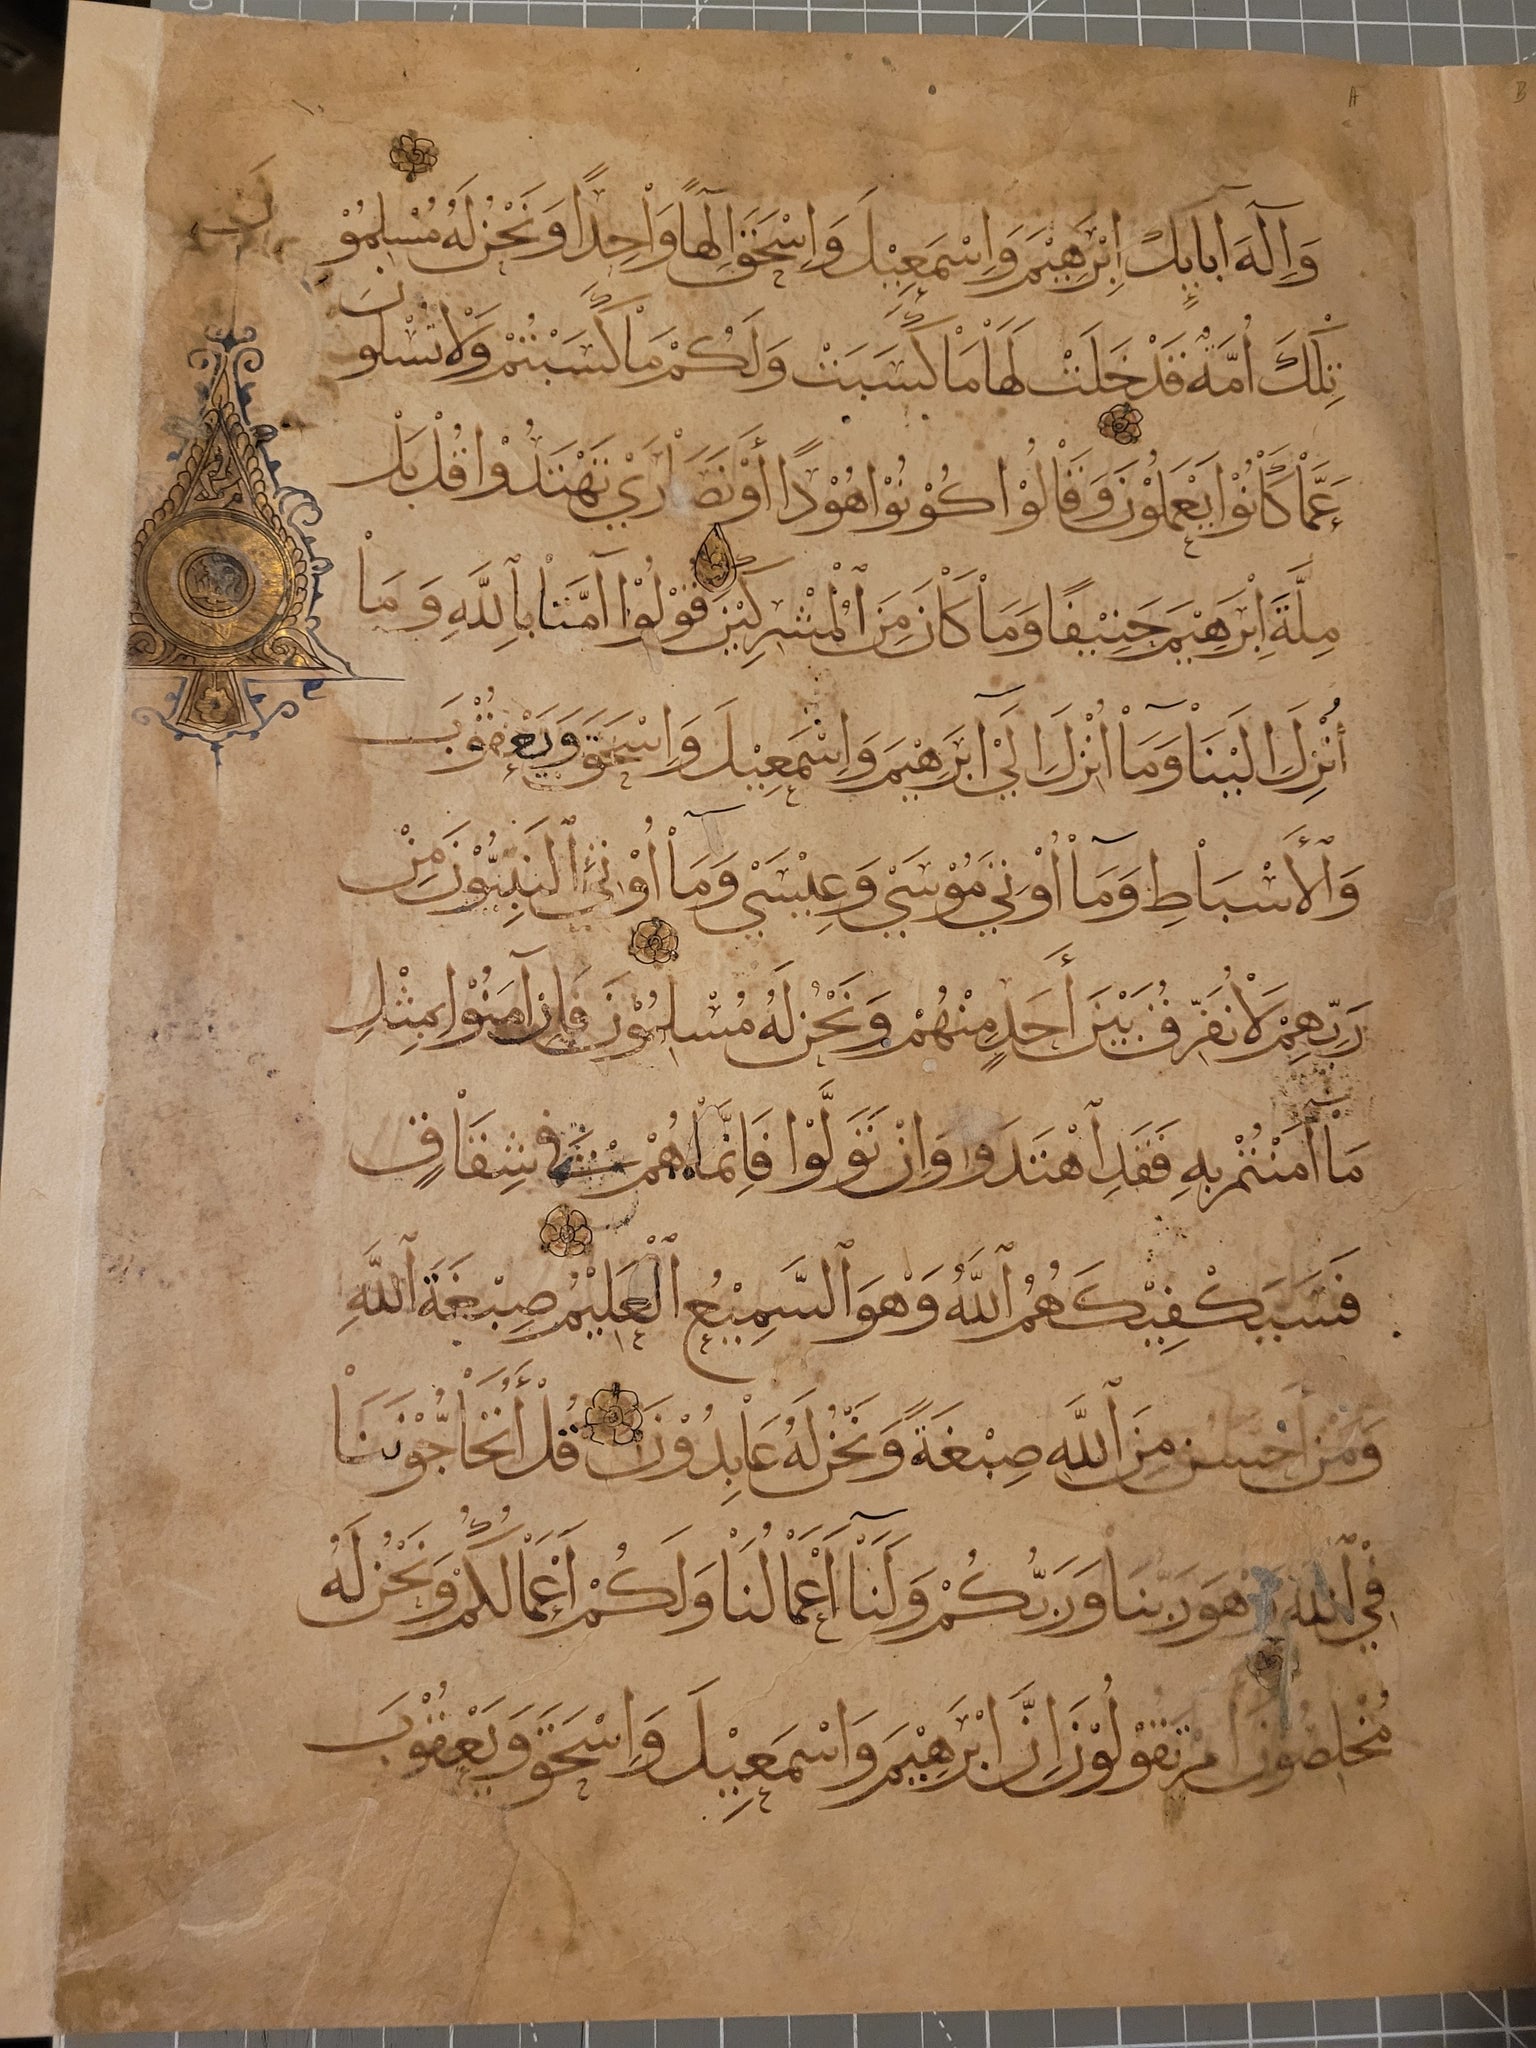 وَإِلَٰهَ آبَايِكَ إِبْرَهِيمَ وَإِسْمَعِيْلَ وَإِسْحَقَ إِلَٰهًا وَاْحِدًا وَنَحْنُ لَهُ مُسْلِمُوْنَ
تِلْكَ أُمَّةٌ قَدْ خَلَتْ لَهَاْ مَاْ كَسَبَتْ وَلَكُمْ مَاْ كَسَبْتُمْ وَلَاْ تُسْلَوْنَ
عَمَّاْ كَاْنُوْا يَعْمَلُوْنَ وَقَاْلُوْا كُوْنُوْا هُوْدًا أَوْ نَصَاْرَيْ تَهْتَدُوْا قُلْ بَلْ
مِلَّةَ إِبْرَهِيْمَ حَنِيْفًا وَمَاْ كَاْنَ مِنَ ٱلْمُشْرِكِيْنَ قُوْلُوْا آمَنَّاْ بِٱللَّهِ وَمَاْ
أُنْزِلَ إِلَيْنَاْ وَمَاْ أُنْزِلَ إِلَيْ إِبْرَهِيْمَ وَإِسْمَعِيْلَ وَإِسْحَقَ وَيَعْقُوْبَ
وَٱلْأَسْبَاْطِ وَمَاْ أُوْتِيَ مُوْسَيْ وَعِيْسَيْ وَمَاْ أُوْتِيَ ٱلنَّبِيُّوْنَ مِنْ
رَبِّهِمْ لَاْ نُفَرِّقُ بَيْنَ أَحَدٍ مِنْهُمْ وَنَحْنُ لَهُ مُسْلِمُوْنَ فَإِنْ آمَنُوْا بِمِثْلِ
مَاْ آمَنْتُمْ بِهِ فَقَدِ ٱهْتَدَوْا وَإِنْ تَوَلَّوْا فَإِنَّمَاْ هُمْ فِي شِقَاْقٍ
فَسَيَكْفِيْكَهُمُ ٱللَّهُ وَهْوَ ٱلسَّمِيْعُ ٱلْعَلِيْمُ صِبْغَةَ ٱللَّهِ
وَمَنْ أَحْسَنُ مِنَ ٱللَّهِ صِبْغَةً وَنَحْنُ لَهُ عَاْبِدُوْنَ قُلْ أَتُحَاْجُّوْنَنَاْ
فِي ٱللَّهِ وَهْوَ رَبُّنَا وَرَبُّكُمْ وَلَنَاْ أَعْمَاْلُنَاْ وَلَكُمْ أَعْمَاْلُكُمْ وَنَحْنُ لَهُ
مُخْلِصُوْنَ أَمْ تَقُوْلُوْنَ إِنَّ إِبْرَهِيْمَ وَإِسْمَعِيْلَ وَإِسْحَقَ وَيَعْقُوْبَ
A
B